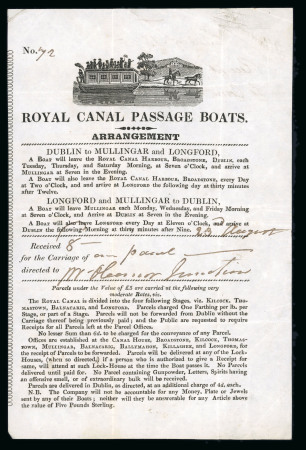 No. 72
ROYAL CANAL PASSAGE BOATS.
ARRANGEMENT
DUBLIN to MULLINGAR and LONGFORD,
A BOAT will leave the ROYAL CANAL HARBOUR, BROADSTONE, DUBLIN, each
Tuesday, Thursday, and Saturday Morning, at Seven o'Clock, and arrive at
MULLINGAR at Seven in the Evening.
A BOAT will also leave the ROYAL CANAL HARBOUR, BROADSTONE, every Day,
at Two o'Clock, and and arrive at LONGFORD the following day at thirty minutes
after Twelve.
LONGFORD and MULLINGAR to DUBLIN,
A BOAT will leave MULLINGAR each Monday, Wednesday, and Friday Morning
at Seven o'Clock, and Arrive at DUBLIN at Seven in the Evening.
A BOAT will leave LONGFORD every Day at Eleven o'Clock, and arrive at
DUBLIN the following Morning at thirty minutes after Nine. 22 August
Received 8
for the Carriage of one parcel
directed to Mr
Parcels under the Value of £5 are carried at the following very
moderate Rates, viz.
The ROYAL CANAL is divided into the four following Stages, viz. KILCOCK, THO-
MASTOWN, BALNACARIG, and LONGFORD. Parcels charged One Farthing per lb. per
Stage, or part of a Stage. Parcels will not be forwarded from Dublin without the
Carriage thereof being previously paid; and the Public are requested to require
Receipts for all Parcels left at the Parcel Offices.
No lesser Sum than 6d. to be charged for the conveyance of any Parcel.
Offices are established at the CANAL HOUSE, BROADSTONE, KILCOCK, THOMAS-
TOWN, MULLINGAR, BALNACARIG, BALLYMAHON, KILLASHEE, and LONGFORD, for
the receipt of Parcels to be forwarded. Parcels will be delivered at any of the Lock-
Houses, (when so directed,) if a person who is authorized to give a Receipt for
same, will attend at such Lock-House at the time the Boat passes it. No Parcels
delivered until paid for. No Parcel containing Gunpowder, Letters, Spirits having
an offensive smell, or of extraordinary bulk will be received.
Parcels are delivered in Dublin, as directed, at an additional charge of 4d. each.
N.B. The Company will not be accountable for any Money, Plate or Jewels
sent by any of their Boats; neither will they be accountable for any Article above
the value of Five Pounds Sterling.